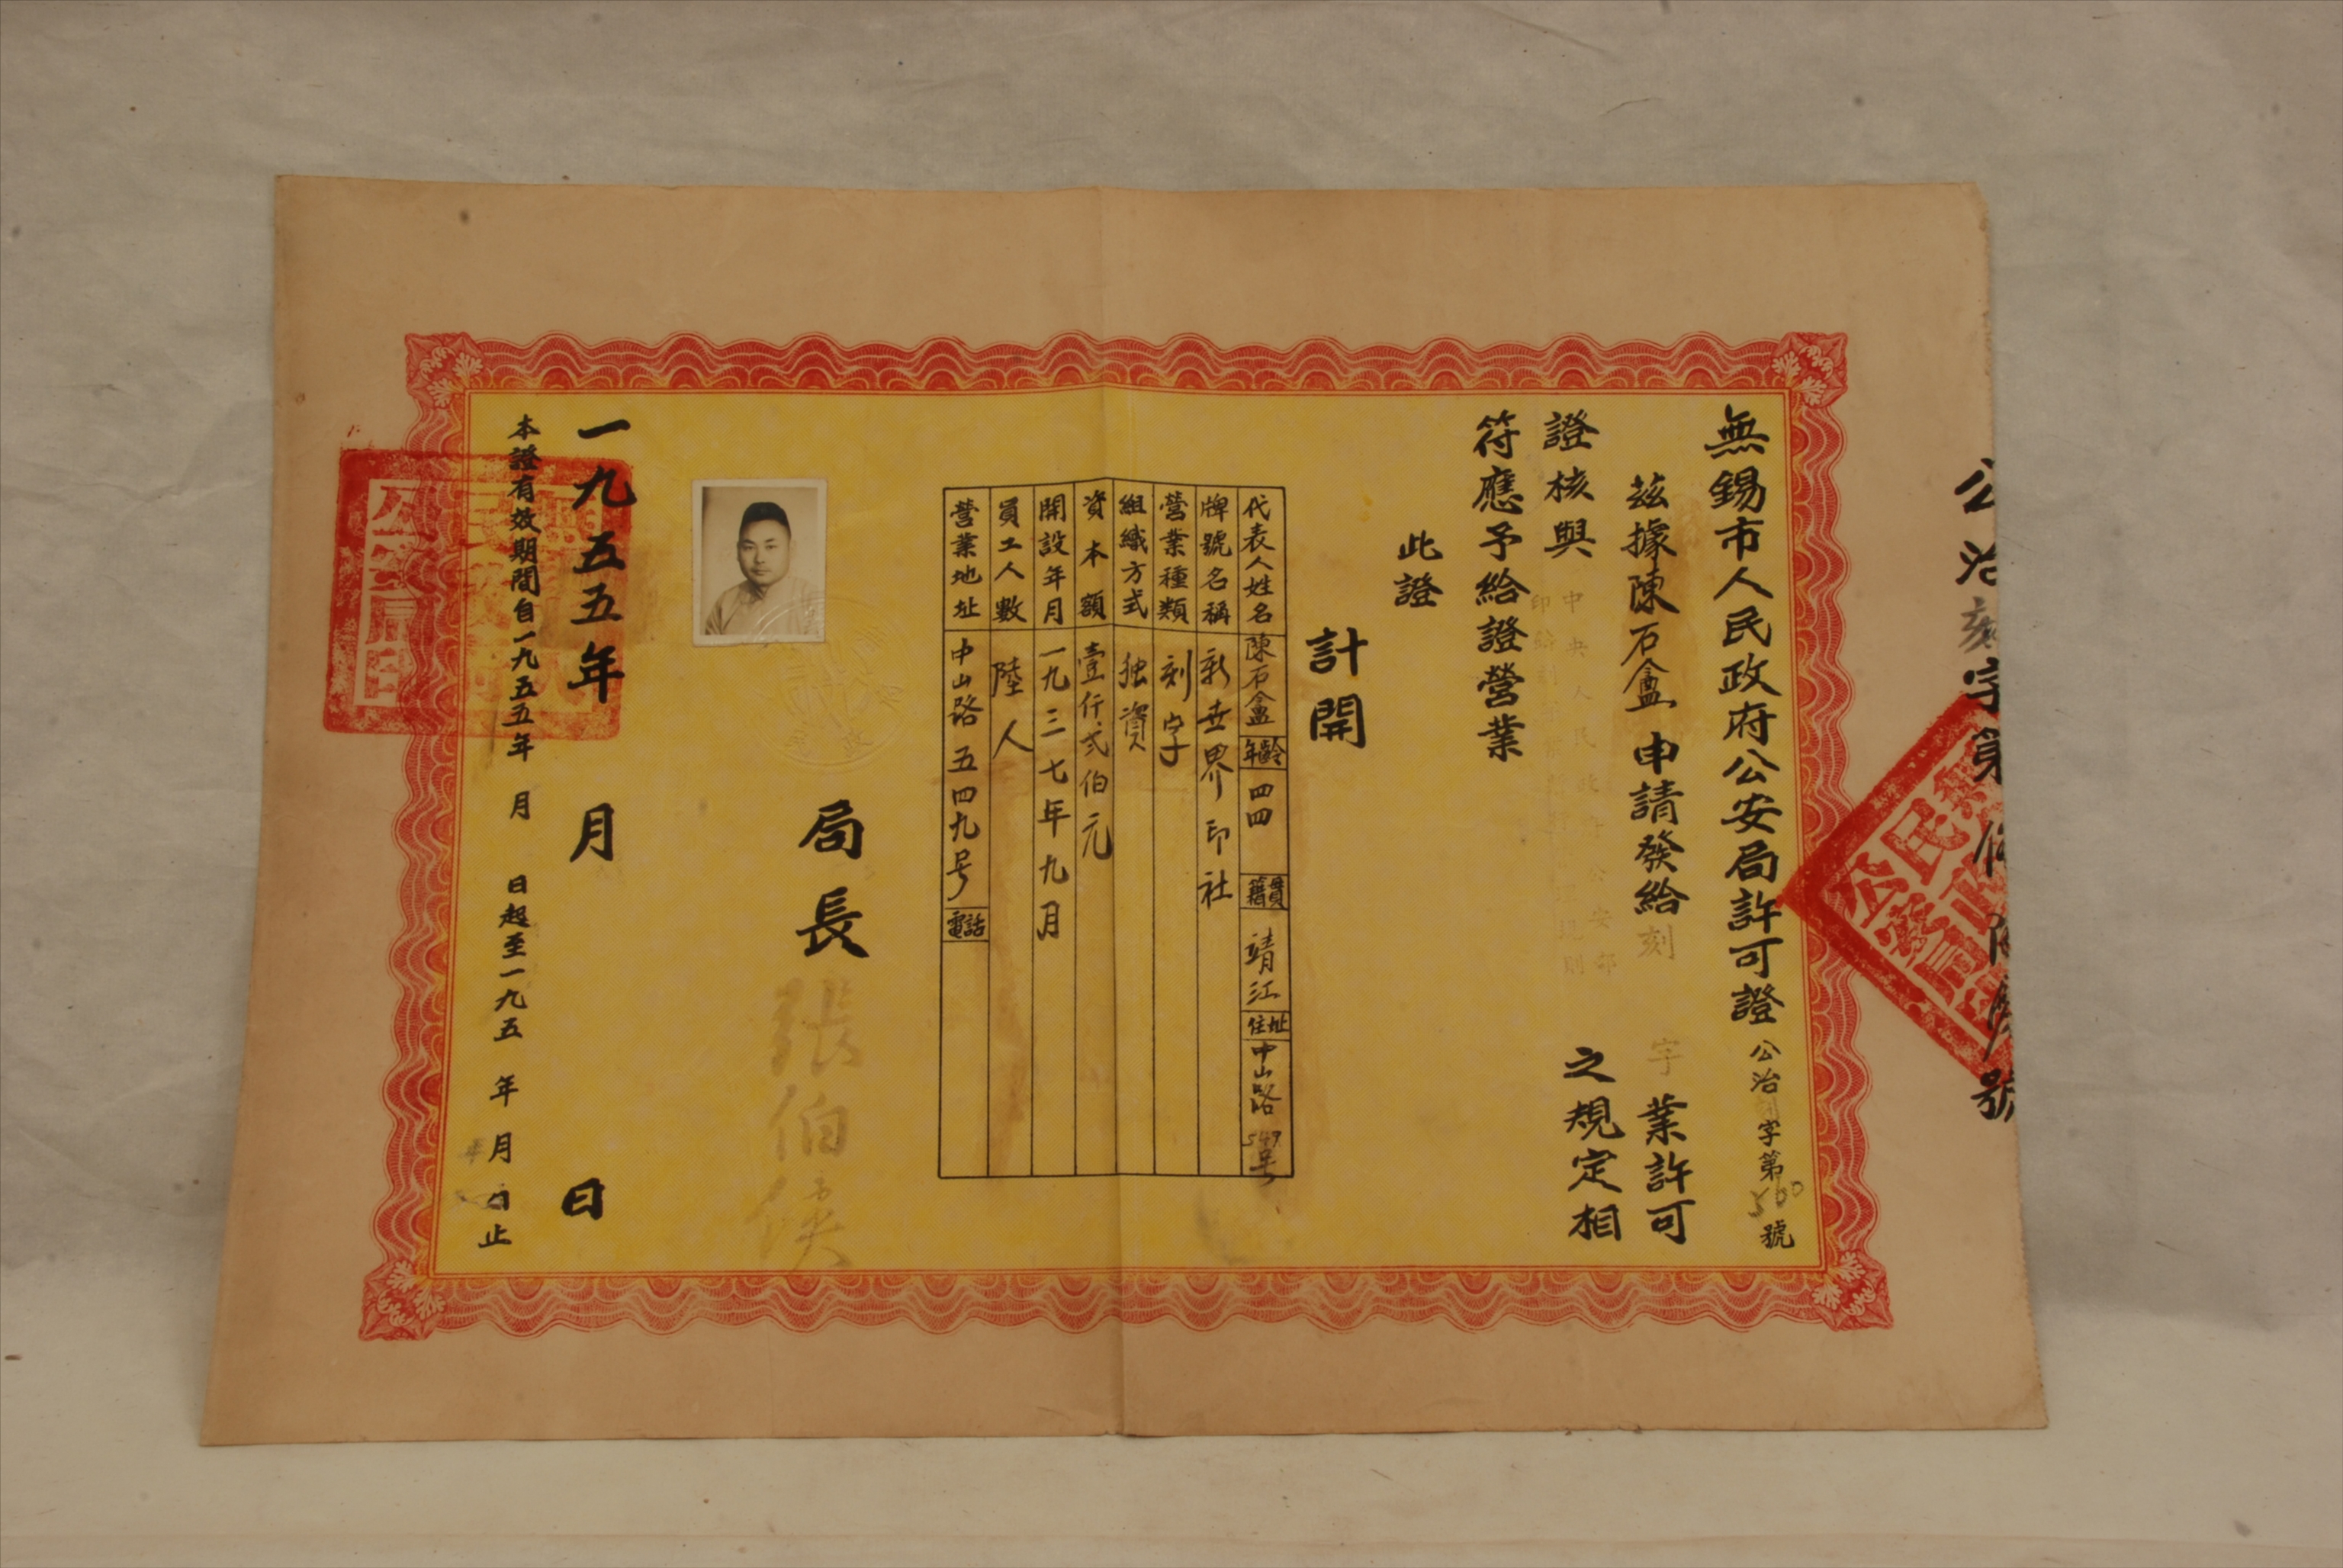 公治刻字第
號
無錫市人民政府公安局許可證
公治 字第500號
茲據陳石盦申請發給刻字業許可
證核與中央人民政府公安部
印鑄刻字業暫行管理規則
之規定相
符應予給證營業
此證
計開
代表人姓名 陳石盦 年齡 四四 籍貫 靖江 住址 中山路549号
牌號名稱 新世界印社
營業種類 刻字
組織方式 独資
資本額 壹仟弍伯元
開設年月 一九三七年九月
員工人數 陸人
營業地址 中山路五四九号 電話
局長 張伯
一九五五年 月 日
本證有效期間自一九五五年 月 日起至一九五 年 月 日止